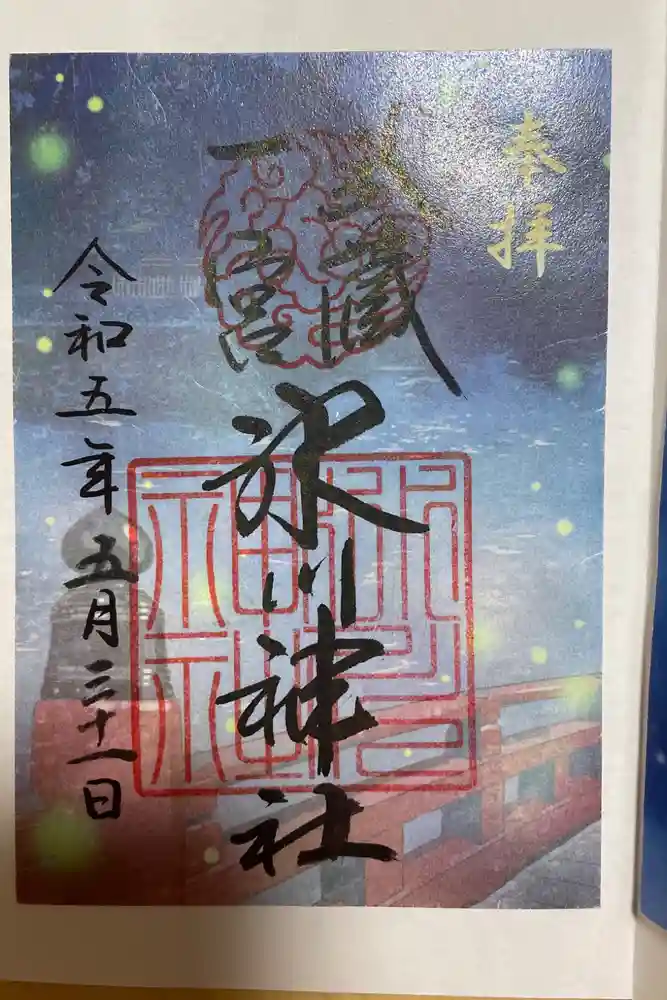 奉拝
武蔵
一宮
氷川神社
氷川神社
令和五年五月三十一日